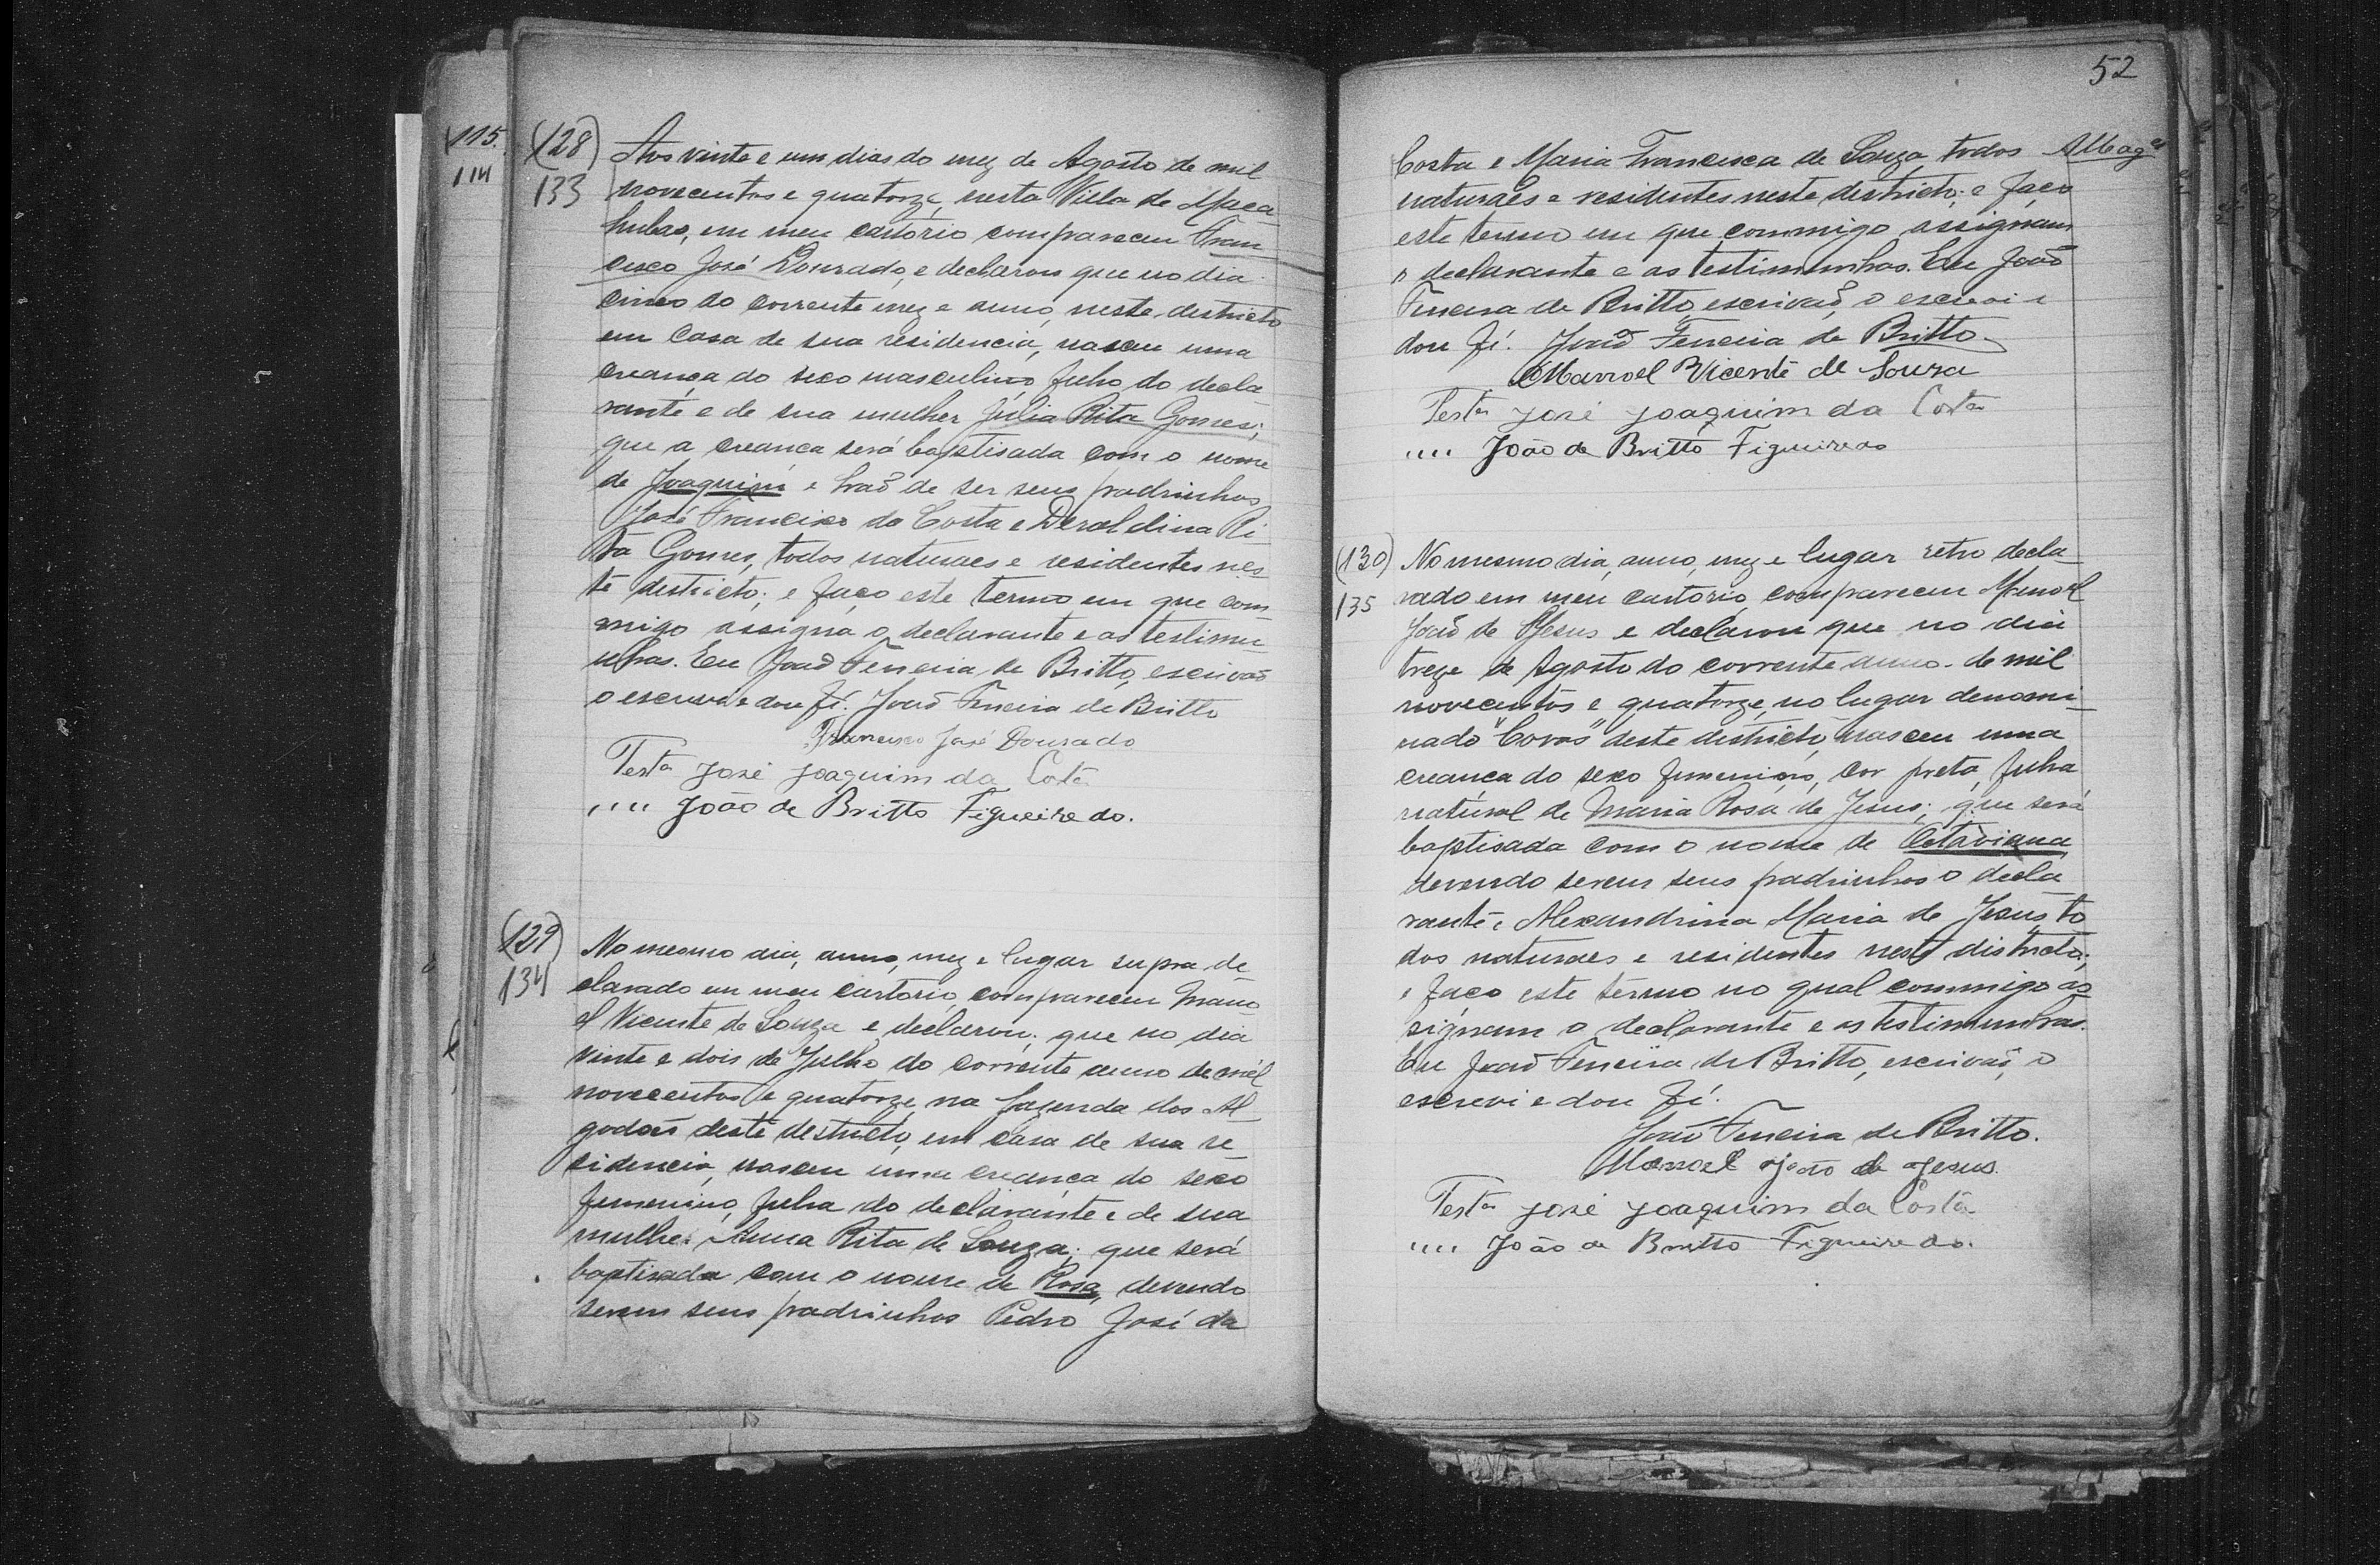 115.
114
(128)
133
Aos vinte e um dias do mez de Agosto de mil
novecentos e quatorze, nesta Villa de Maca
hubas, em meu cartorio compareceu Fran
cisco José Dourado, e declarou que no dia
cinco do corrente mez e anno, neste districto
em casa de sua residencia, nasceu uma
creança do sexo masculino, filho do decla
rante e de sua mulher Julia Rita Gomes;
que a creança será baptisada com o nome
de Joaquim e hão de ser seus padrinhos
José Francisco da Costa e Deraldina Ri
ta Gomes, todos naturaes e residentes nes
te districto; e faço este termo em que com
migo assigna o declarante e as testimu
nhas. Eu João Ferreira de Britto, escrivão
o escrevi e dou fé. João Ferreira de Britto
Francisco José Dourado
Testa José Joaquim da Costa
"" João de Britto Figueiredo.
(129)
134
No mesmo dia, anno, mez e lugar supra de
clarado em meu cartorio, compareceu Mano
el Vicente de Souza e declarou; que no dia
vinte e dois de Julho do corrente anno de mil
novecentos e quatorze, na fazenda dos Al
godões deste districto, em casa de sua re
sidencia, nasceu uma creança do sexo
femenino, filha do declarante e de sua
mulher Anna Rita de Souza; que será
baptisada com o nome de Rosa, devendo
serem seus padrinhos Pedro José da
52
Costa e Maria Francisca de Souza, todos
naturaes e residentes neste districto; e faço
este termo em que commigo assignam
o declarante e as testimunhas. Eu João
Ferreira de Britto, escrivão, o escrevi e
dou fé. João Ferreira de Britto
Manoel Vicente de Souza
Testa José Joaquim da Costa
"" João de Britto Figueiredo
(130)
135
No mesmo dia, anno, mez e lugar retro decla
rado em meu cartorio, compareceu Manoel
João de Jesus e declarou que no dia
treze de Agosto do corrente anno de mil
novecentos e quatorze, no lugar denomi
nado "Covas" deste districto, nasceu uma
creança do sexo femenino, cor preta, filha
natural de Maria Rosa de Jesus; que será
baptisada com o nome de Octaviana,
devendo serem seus padrinhos o decla
rante e Alexandrina Maria de Jesus, to
dos naturaes e residentes neste districto;
e faço este termo no qual commigo as
signam o declarante e as testimunhas.
Eu João Ferreira de Britto, escrivão, o
escrevi e dou fé.
João Ferreira de Britto.
Manoel João de Jesus.
Testa José Joaquim da Costa
"" João de Britto Figueiredo.